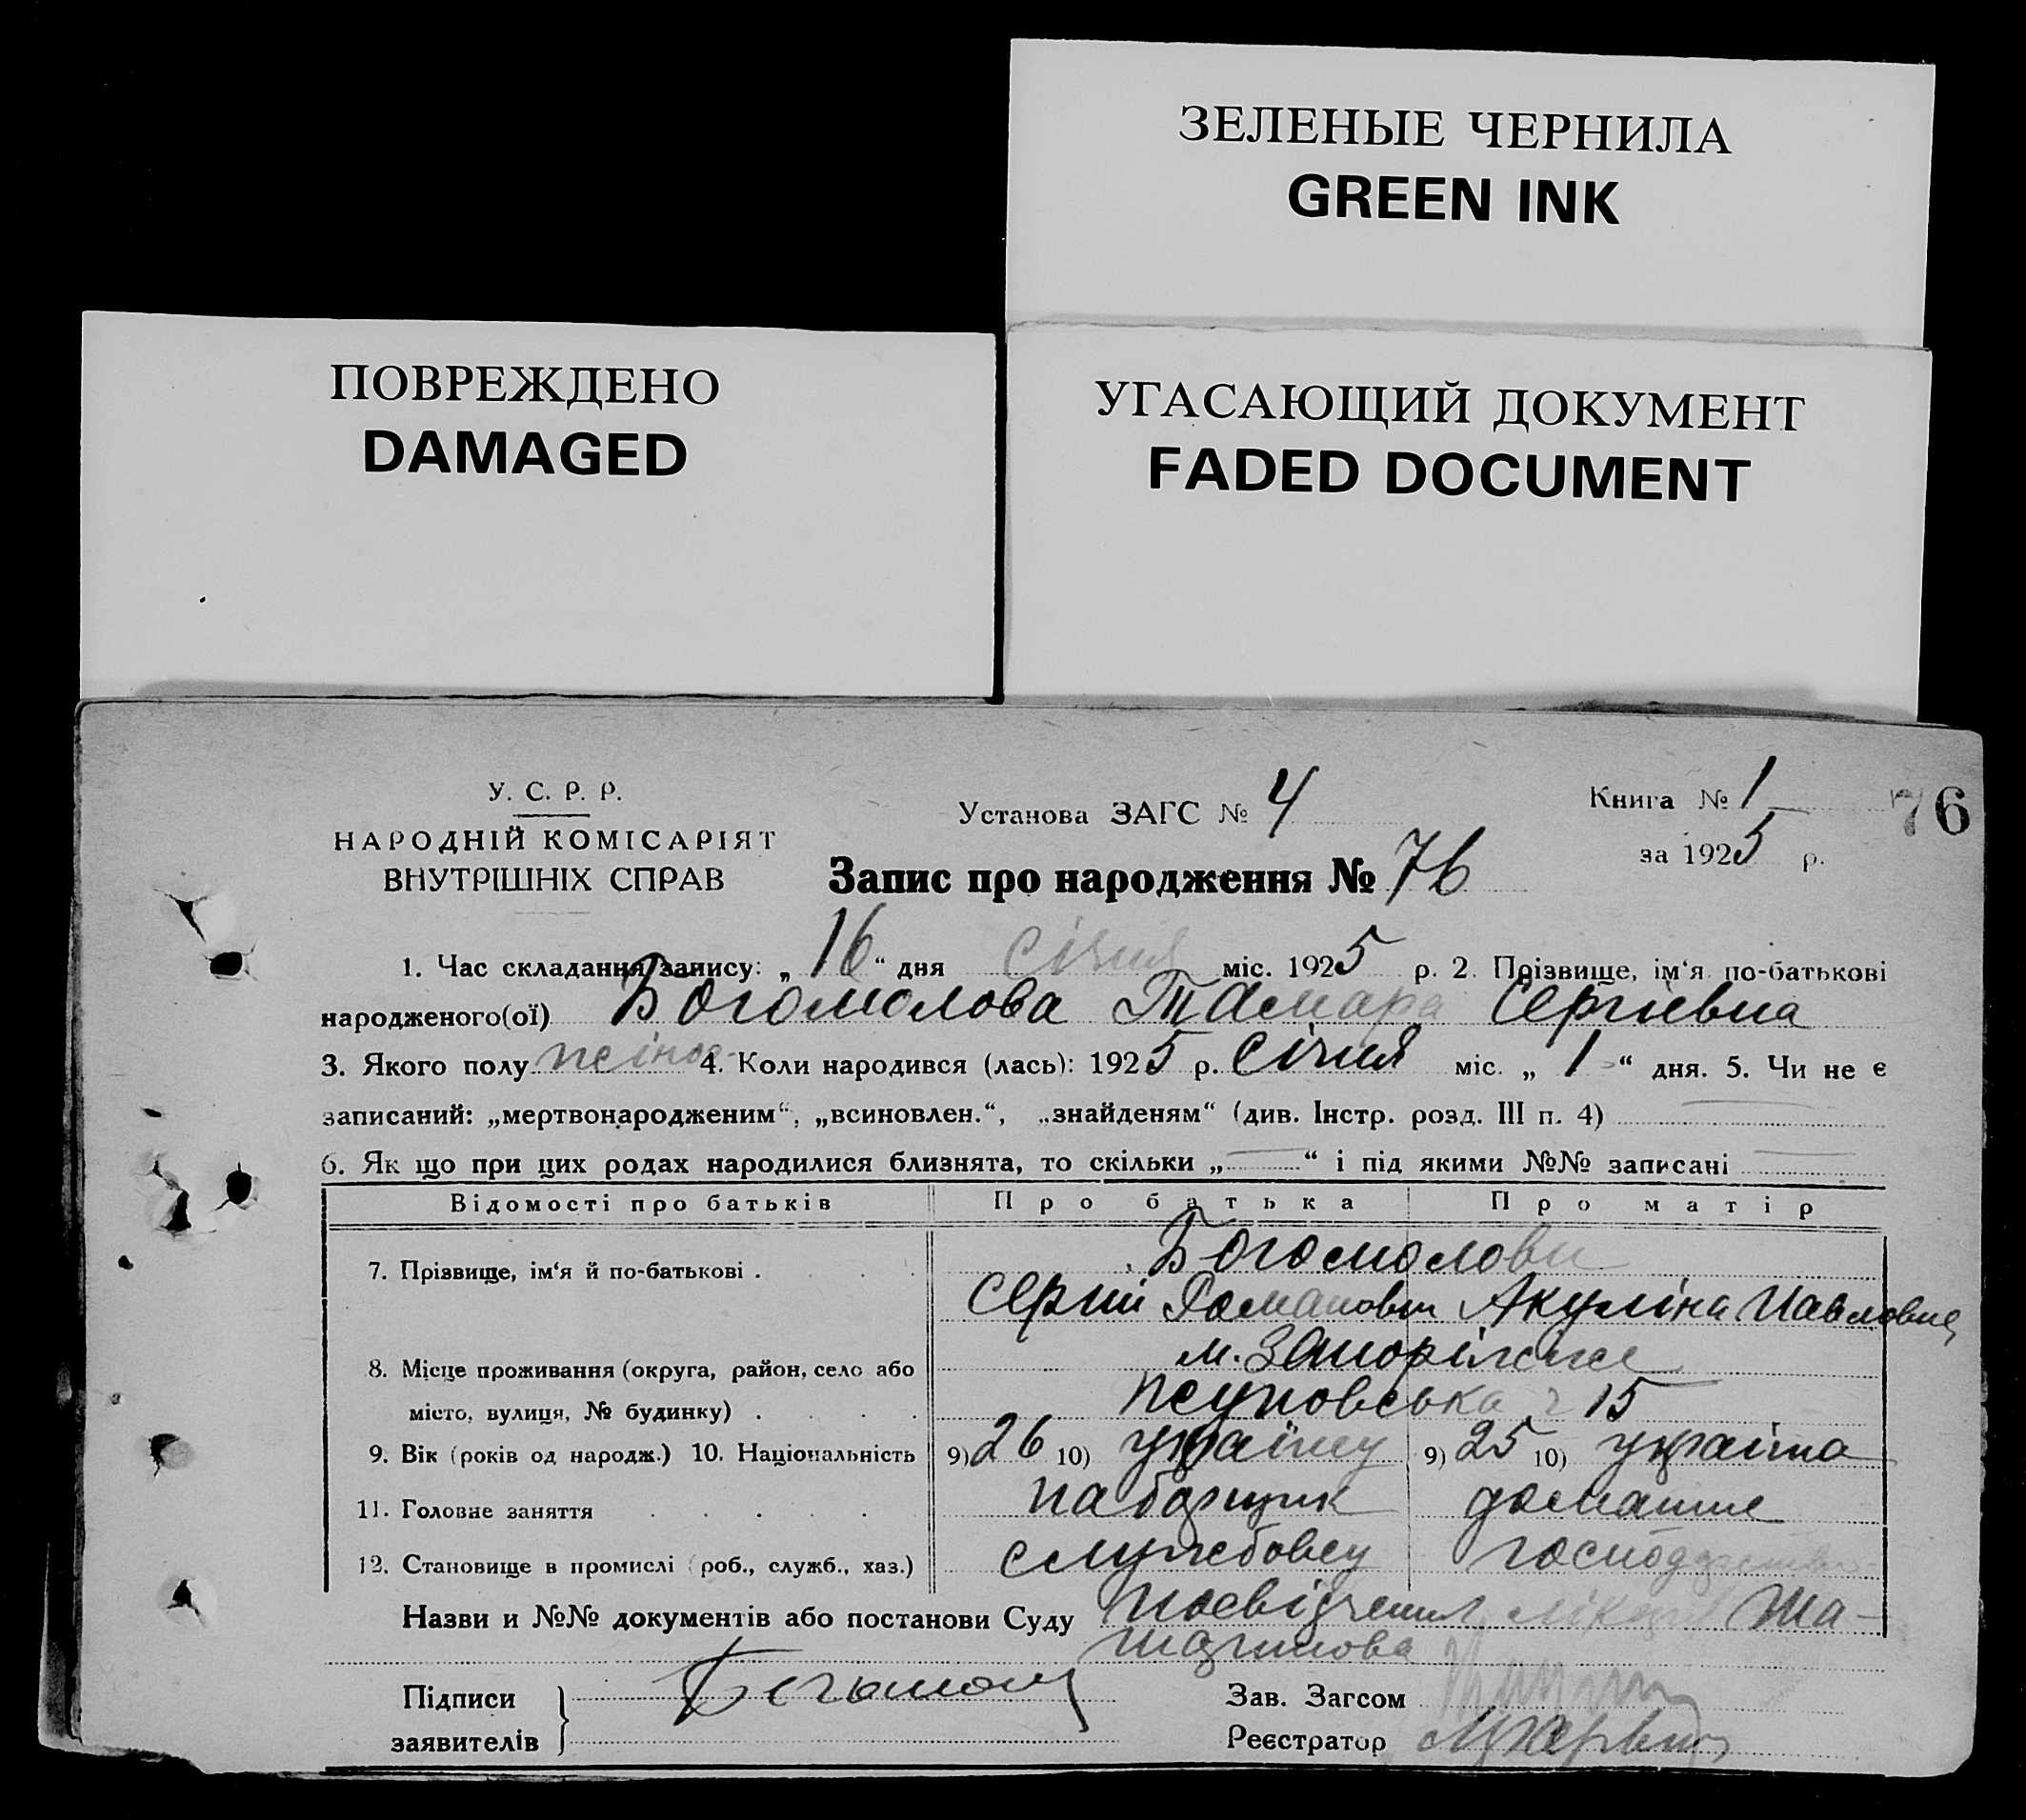 ЗЕЛЕНЫЕ ЧЕРНИЛА
GREEN INK
ПОВРЕЖДЕНО
DAMAGED
УГАСАЮЩИЙ ДОКУМЕНТ
FADED DOCUMENT
У. С. Р. Р.
НАРОДНІЙ КОМІСАРІЯТ
ВНУТРІШНІХ СПРАВ
Установа ЗАГС № 4
Книга № 1
76
за 1925 р.
Запис про народження № 76
1. Час складання запису: „ 16 “ дня січня міс. 1925 р. 2. Прізвище, ім‘я по-батькові
народженого(ої) Богомолова Тамара Сергіевна
3. Якого полу жіноч. 4. Коли народився (лась): 1925 р. Січня міс. „ 1 “ дня. 5. Чи не є
записаний: „мертвонародженим“, „всиновлен.“, „знайденям“ (див. Інстр. розд. III п. 4)
6. Як що при цих родах народилися близнята, то скільки „ “ і під якими №№ записані
Відомості про батьків Про батька Про матір
7. Прізвище, ім‘я й по-батькові . Богомолови
Сергій Романович Акуліна Павловна
8. Місце проживання (округа, район, село або м. Запоріжже
місто, вулиця, № будинку) . 15
9. Вік (років од народж.) 10. Національність 9) 26 10) 9) 25 10)
11. Головне заняття наборщик домашнє
12. Становище в промислі (роб., служб., хаз.) службовец господарство
Назви и №№ документів або постанови Суду посвідчення
Підписи
заявителів
Зав. Загсом
Реєстратор